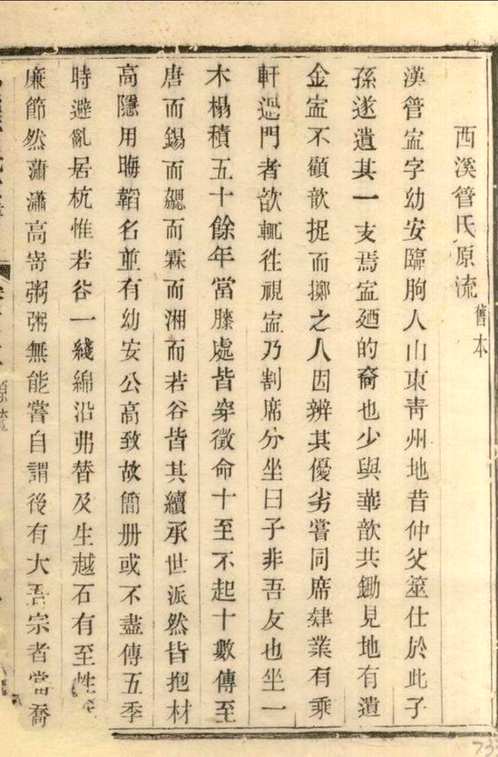 西溪管氏原流舊本
漢管寍字幼安臨朐人山東靑州地昔仲父筮仕於此子
孫遂遺其一支焉寍廼的裔也少與華歆共鋤見地有遺
金寍不顧歆捉而擲之人因辨其優劣嘗同席肄業有乘
軒過門者歆輒徃視寍乃割席分坐曰子非吾友也坐一
木榻積五十餘年當膝處皆穿徵命十至不起十數傳至
唐而錫而勰而霖而湘而若谷皆其續承世派然皆抱材
高隱用晦韜名並有幼安公高致故簡册或不盡傳五季
時避亂居杭惟若谷一綫綿沿弗替及生越石有至性
廉節然蕭瀟高寄粥粥無能嘗自謂後有大吾宗者當喬
733